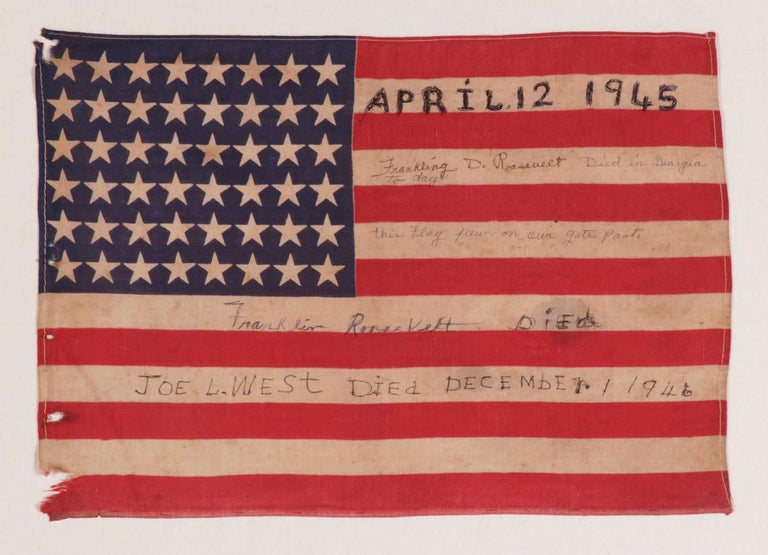 APRIL.12 1945
Frankling D. Roosevelt Died in Georgia
to day
this Flag flew on our gate post.
Franklin Roosevelt DiED
JOE L. WEST DiEd DECEMBER 1 1946